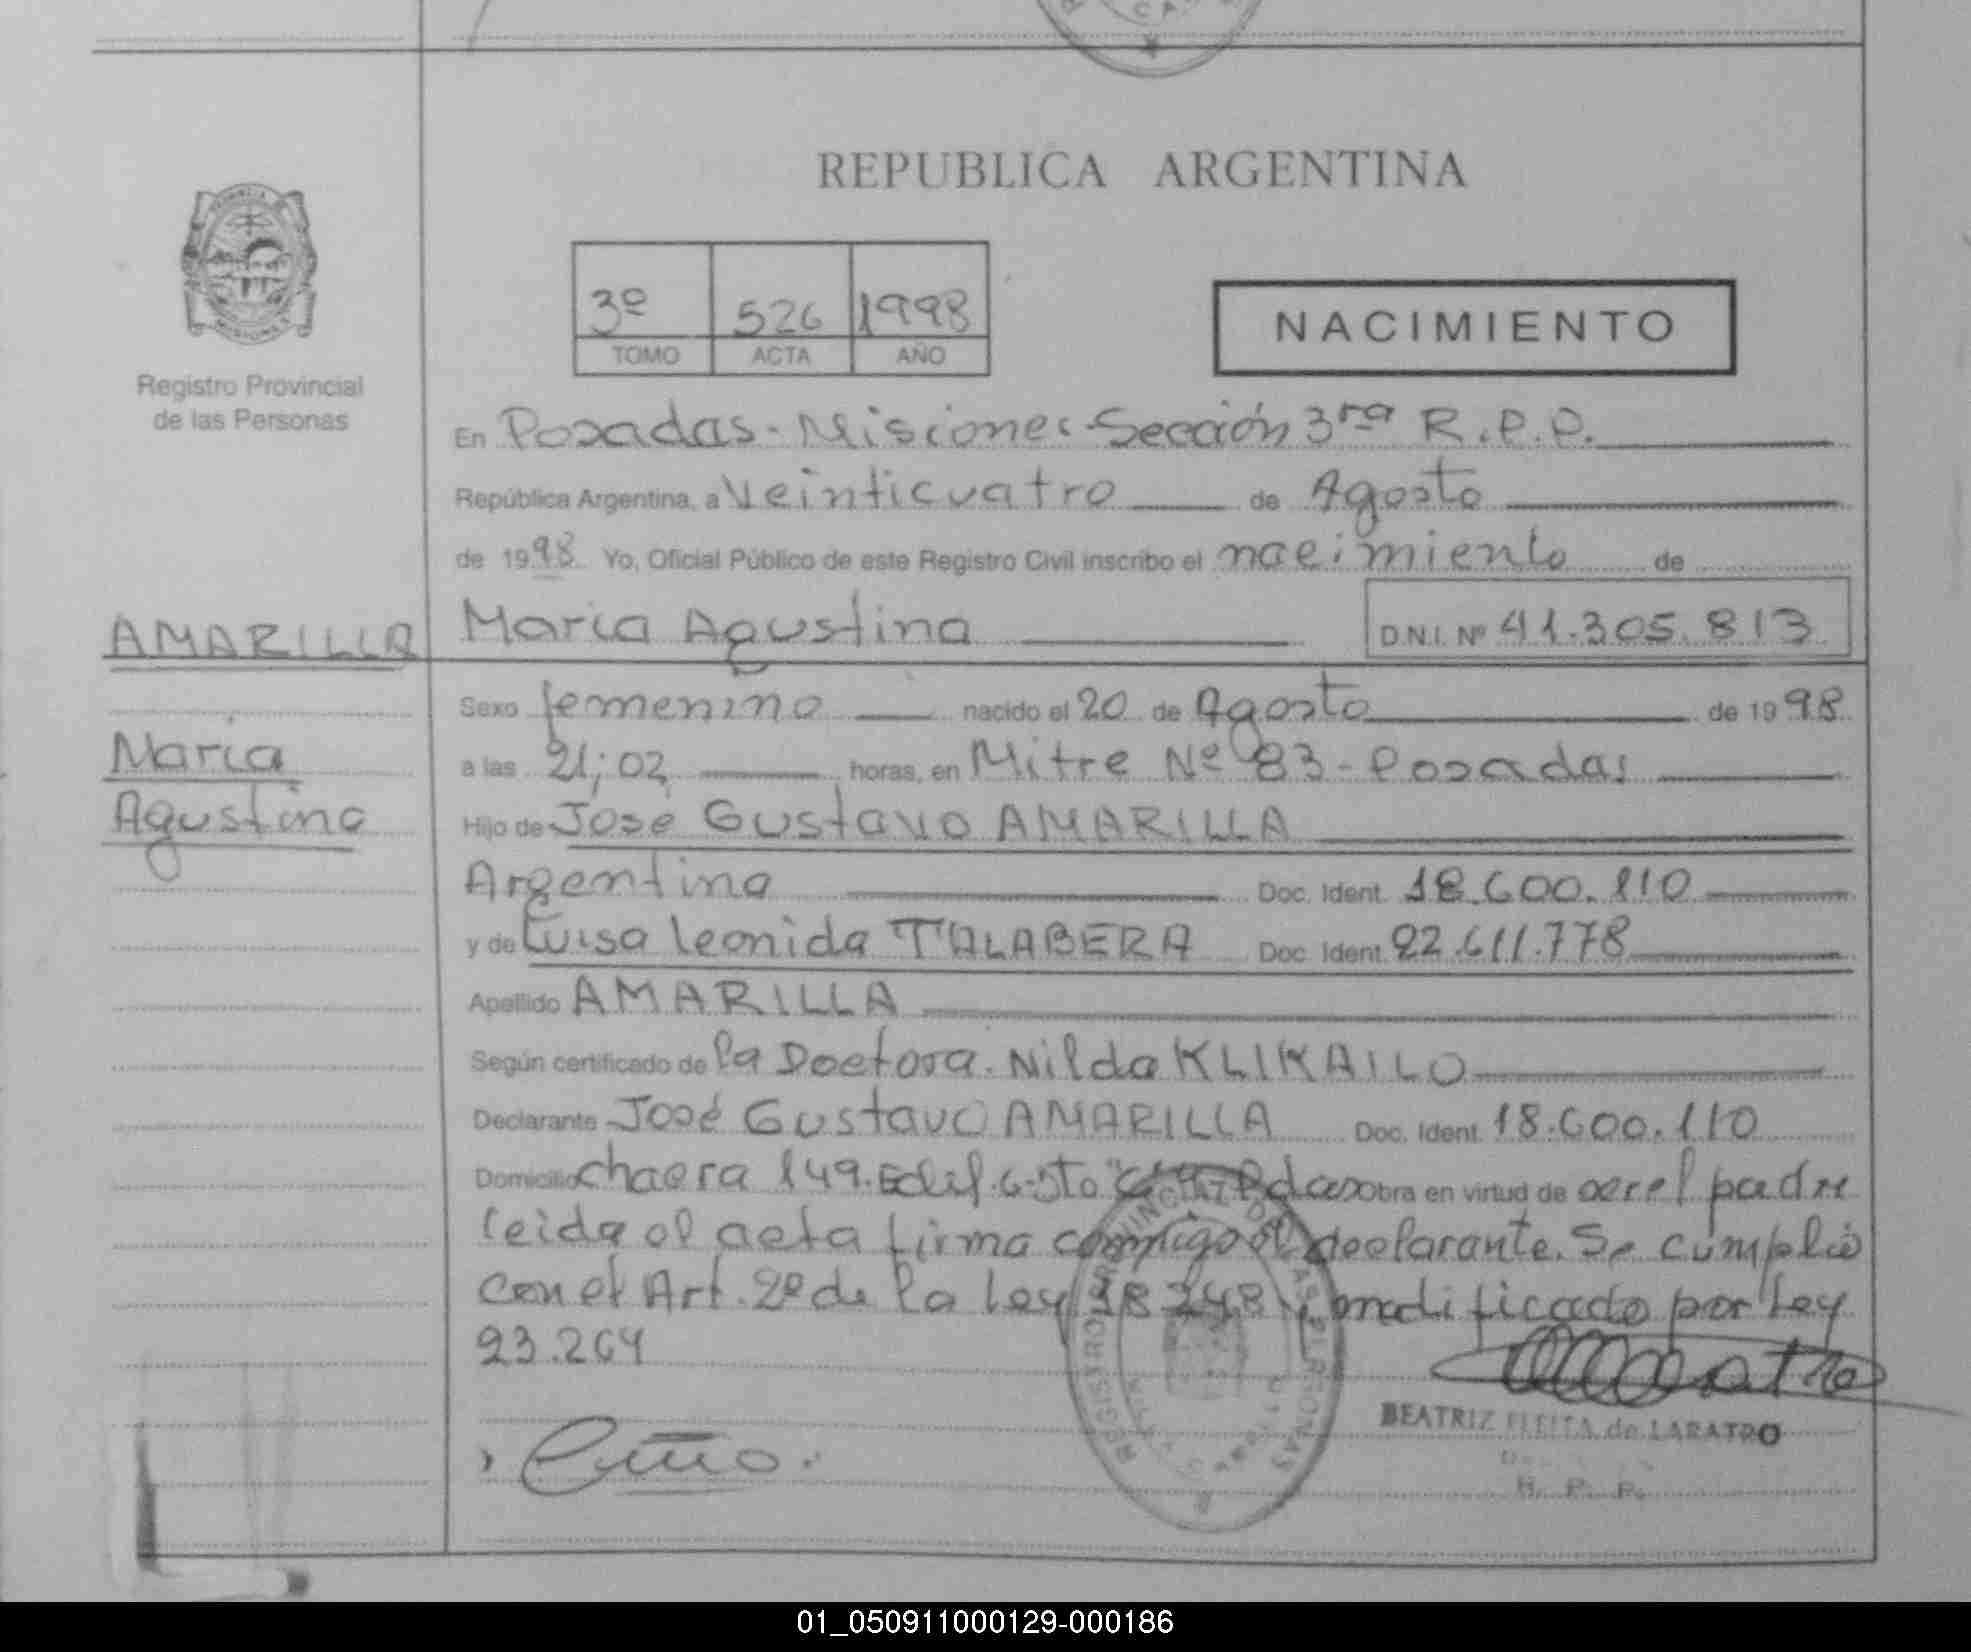 REPUBLICA ARGENTINA
3º 526 1998
TOMO ACTA AÑO
NACIMIENTO
Registro Provincial
de las Personas
En Posadas - Misiones - Sección 3ra R.P.P.
República Argentina, a Veinticuatro de Agosto
de 1998 Yo, Oficial Público de este Registro Civil inscribo el nacimiento de
AMARILLA
María Agustina D.N.I. Nº 41.305.813
María
Agustina
Sexo femenino nacido el 20 de Agosto de 1998
a las 21;02 horas, en Mitre Nº 83 - Posadas
Hijo de José Gustavo AMARILLA
Argentina Doc. Ident. 18.600.110
y de Luisa Leonida TALABERA Doc. Ident. 22.611.778
Apellido AMARILLA
Según certificado de la Doctora. Nilda KLIKAILO
Declarante José Gustavo AMARILLA Doc. Ident. 18.600.110
Domicilio chacra 149. Edif. 6- Pdas obra en virtud de ser el padre
leida el acta firma conmigo el declarante. Se cumplió
con el Art. 2º de la Ley 18.248 modificado por Ley
23.264
BEATRIZ FLEITA de LARATRO
R. P. P.
REGISTRO PROVINCIAL DE LAS PERSONAS
01_050911000129-000186